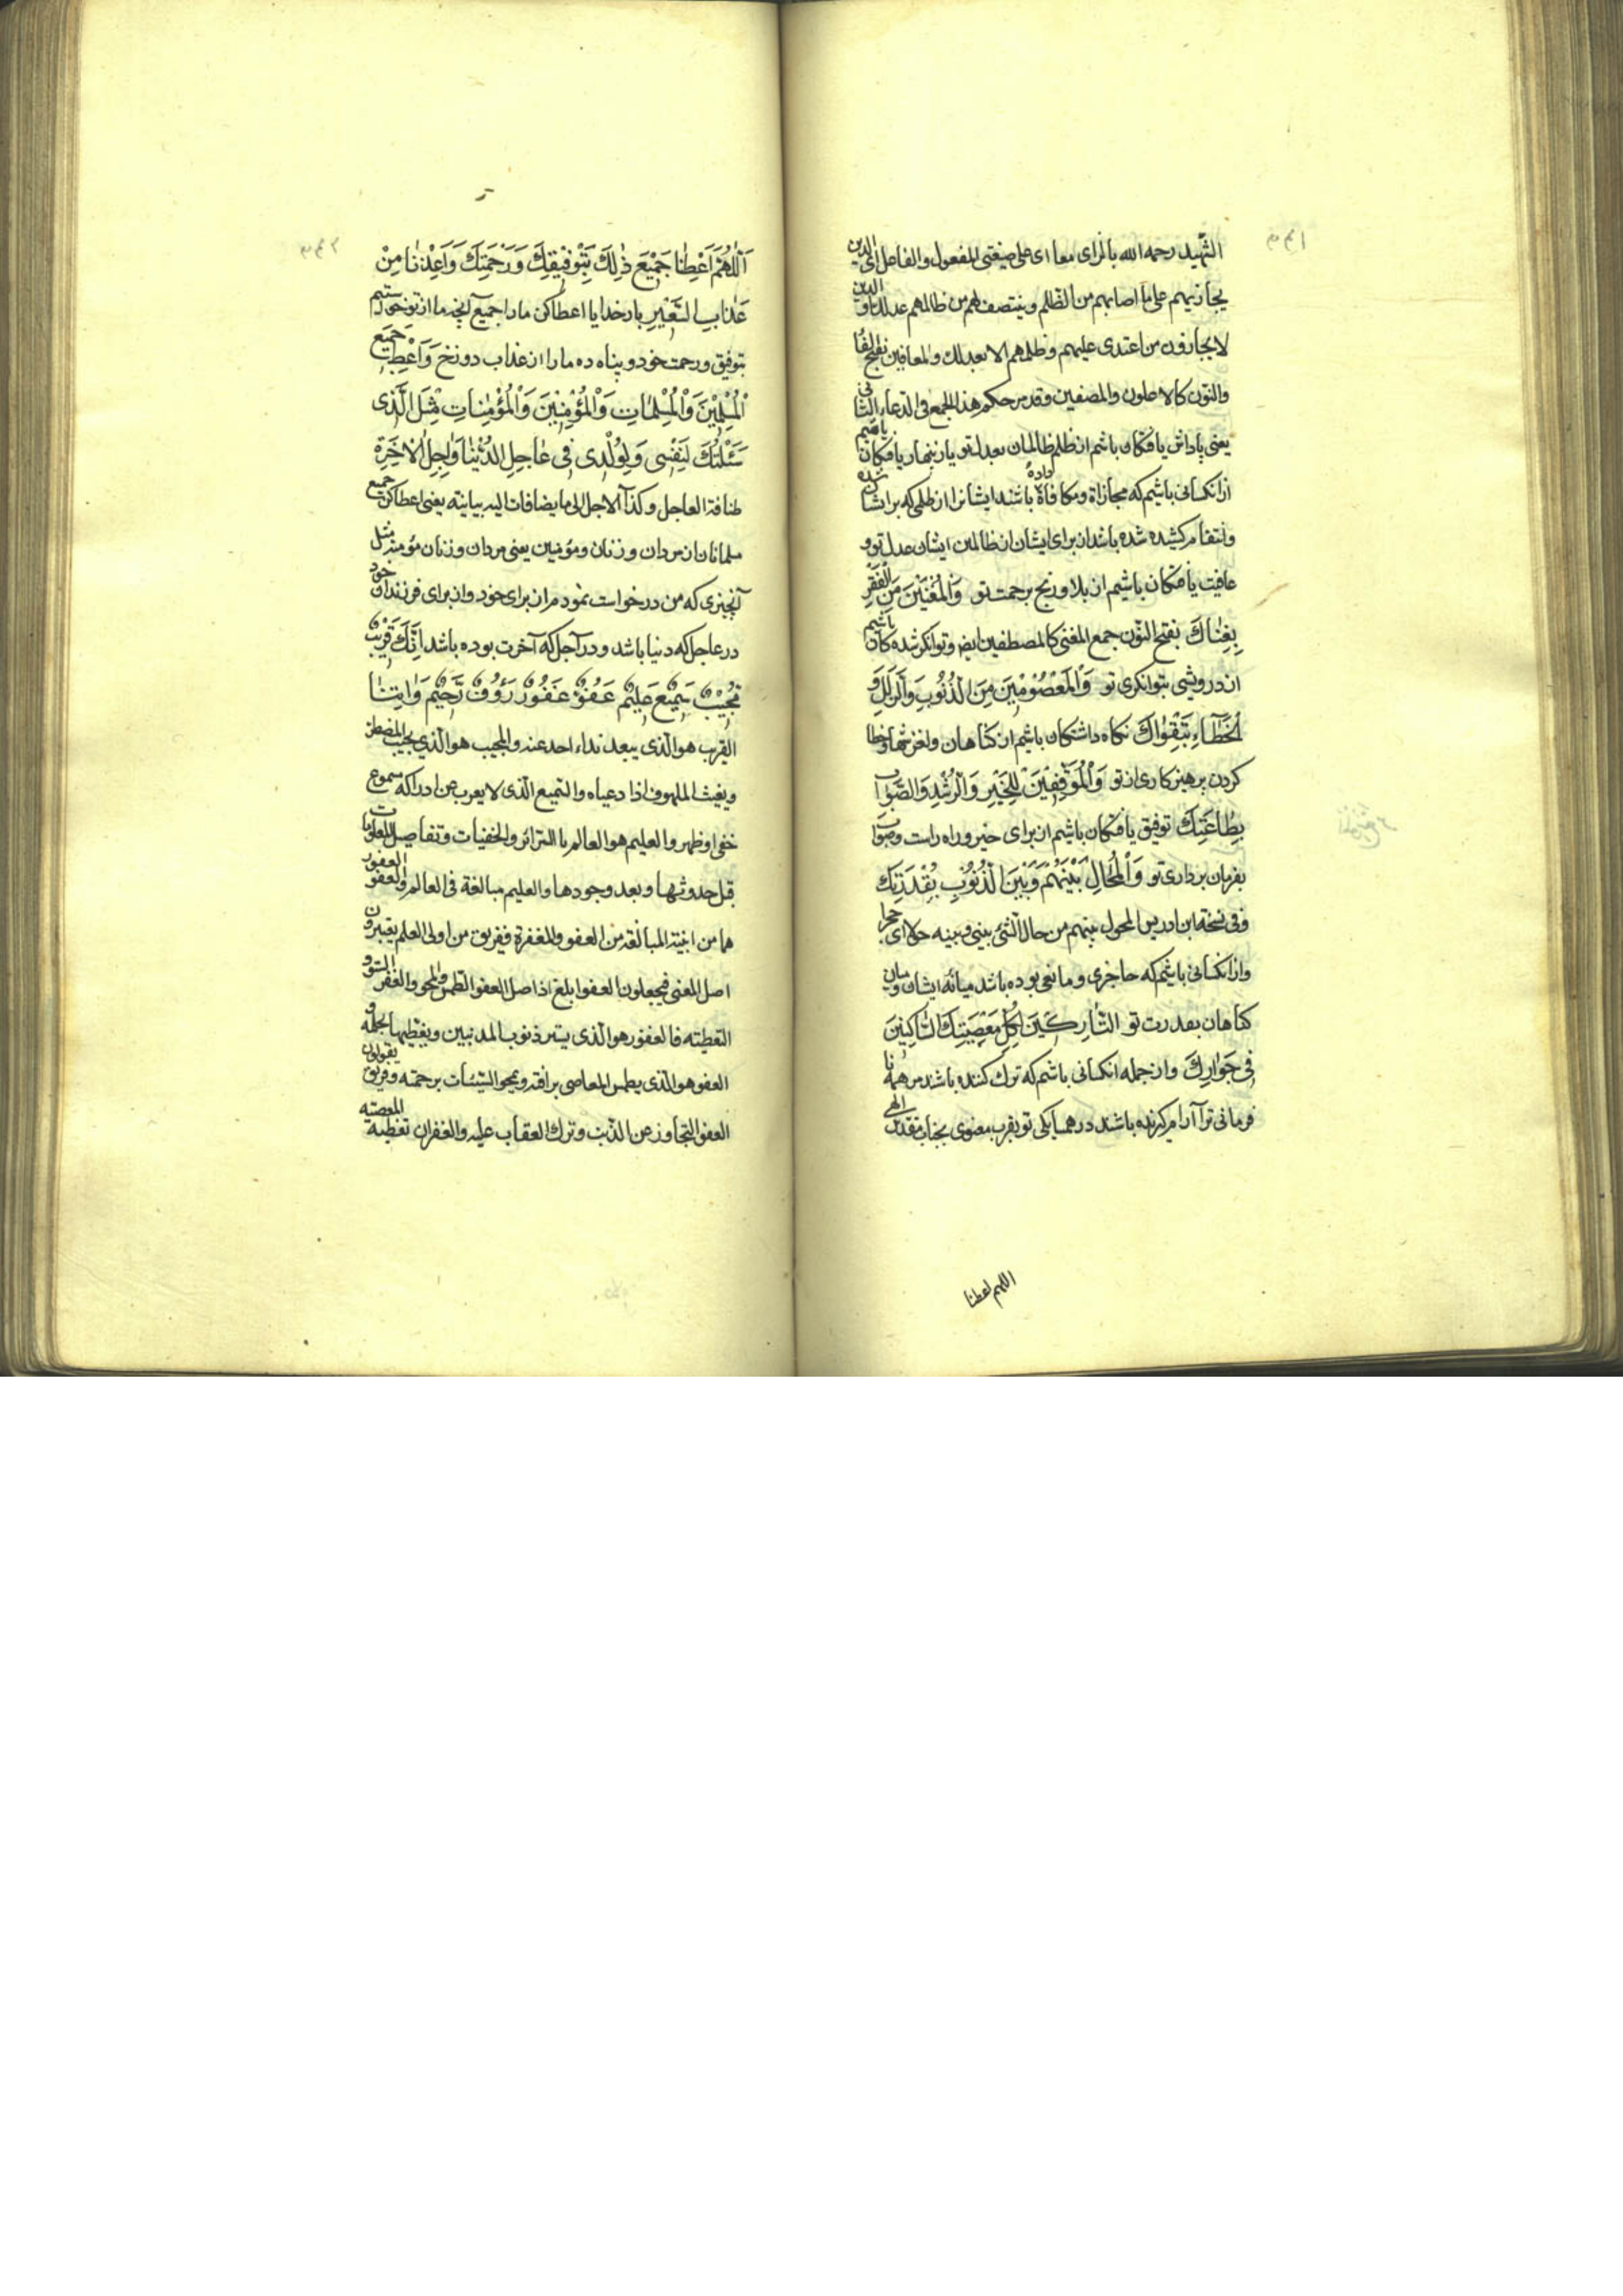 الشهید رحمه الله بالزای معا ای علی صیغتی المفعول والفاعل ای الذین
یجازیهم علی ما اصابهم من الظلم وینتصف لهم من ظالمهم عدلك او الذین
لا یجازون من اعتدی علیهم وظلمهم الا بعدلك والمعافین بفتح الفا
والنون کالاعلون والمصطفین وقد مر حکم هذا الجمع فی الدعاء الثانی
یعنی پاداش یافتکان باشم از ظلم ظالمان بعدل تو یا زینهار یافتکان باشیم
از انکسانی باشیم که مجازاة ومکافاة داده باشند ایشانرا از ظلمی که بر ایشا شده
وانتقام کشیده شده باشد از برای ایشان از ظالمین ایشان عدل تو و
عافیت یافتکان باشیم از بلا و رنج برحمت تو وَالْمُغْنَیْنَ مِنَ الْفَقْرِ
بِغِنَاكَ بفتح النون جمع المغنی کالمصطفین ایض و توانکر شده کان باشیم
از درویشی بتوانکری تو وَالْمَعْصُومِینَ مِنَ الذُّنُوبِ وَالزَّلَلِ وَ
الْخَطَاءِ بِتَقْوَاكَ نکاه داشتکان باشیم از کناهان ولغزشها وخطا
کردن بپرهیز کاری از تو وَالْمُوَفَّقِینَ لِلْخَیْرِ وَالرُّشْدِ وَالصَّوَابِ
بِطَاعَتِكَ توفیق یافتکان باشیم از برای خیر و راه راست وصواب
بفرمان برداری تو وَالْمُحَالِ بَیْنَهُمْ وَبَیْنَ الذُّنُوبِ بِقُدْرَتِكَ
وفی نسخة ابن ادریس المحول بینهم من حال الشئ بینی وبینه حولا ای حجز
واز انکسانی باشیم که حاجزی ومانعی بوده باشد میانهٔ ایشان ومیان
کناهان بقدرت تو التَّارِکِینَ لِکُلِّ مَعْصِیَتِكَ السَّاکِنِینَ
فِی جِوَارِكَ واز جمله انکسانی باشم که ترك کننده باشند مر همه نا
فرمانی ترا آرام کیرنده باشند در همسایکی تو بقرب معنوی بجناب مقدس الهی
اللهم اعطنا
اَللّٰهُمَّ اَعْطِنَا جَمِیعَ ذٰلِكَ بِتَوْفِیقِكَ وَرَحْمَتِكَ وَاَعِذْنَا مِنْ
عَذَابِ السَّعِیرِ بار خدایا اعطا کن ما را جمیع آنچه ما از تو خواستیم
بتوفیق و رحمت خود و پناه ده ما را از عذاب دوزخ وَاَعْطِ جَمِیعَ
الْمُسْلِمِینَ وَالْمُسْلِمَاتِ وَالْمُؤْمِنِینَ وَالْمُؤْمِنَاتِ مِثْلَ الَّذِی
سَئَلْتُكَ لِنَفْسِی وَلِوُلْدِی فِی عَاجِلِ الدُّنْیَا وَاٰجِلِ الْاٰخِرَةِ
اضافة العاجل وکذا الاجل الی ما یضافات الیه بیانیة یعنی اعطا کن جمیع
مسلمانان از مردان و زنان ومؤمنین یعنی مردان و زنان مؤمنه مثل
آنچیزی که من درخواست نمودم از برای خود و از برای فرزندان خود
در عاجل که دنیا باشد و در آجل که آخرت بوده باشد اِنَّكَ قَرِیبٌ
مُجِیبٌ سَمِیعٌ عَلِیمٌ عَفُوٌّ غَفُورٌ رَؤُفٌ رَحِیمٌ وَاٰتِنَا
القریب هو الذی یبعد نداء احد عنه والمجیب هو الذی یجیب المضطر
ویغیث الملهوف اذا دعیاه والسمیع الذی لا یعزب عن ادراکه مسموع
خفی او ظهر والعلیم هو العالم بالسرائر والخفیات وتفاصیل المعلومات
قبل حدوثها وبعد وجودها والعلیم مبالغة فی العالم والعفو الغفور
هما من ابنیة المبالغة من العفو والمغفرة وفریق من اولی العلم یعتبرون
اصل المعنی فیجعلون العفو ابلغ اذ اصل العفو الطمس والمحو والغفر الستر و
التغطیة فالغفور هو الذی یستر ذنوب المذنبین ویغطیها بحلمه و
العفو هو الذی یطمس المعاصی برافته ویمحو السیئات برحمته وفریق یقولون
العفو التجاوز عن الذنب وترك العقاب علیه والغفران تغطیة المعصیة